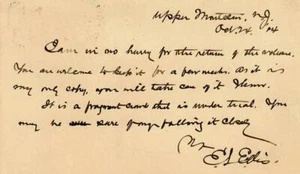 Upper Montclair, N.J.
Oct. 24, '14
I am in no hurry for the return of the volume.
You are welcome to keep it for a few weeks. As it is
my only copy, you will take care of it I know.
It is a fragrant that is under trial. You
may be sure of my following it closely
E. S. Ellis.